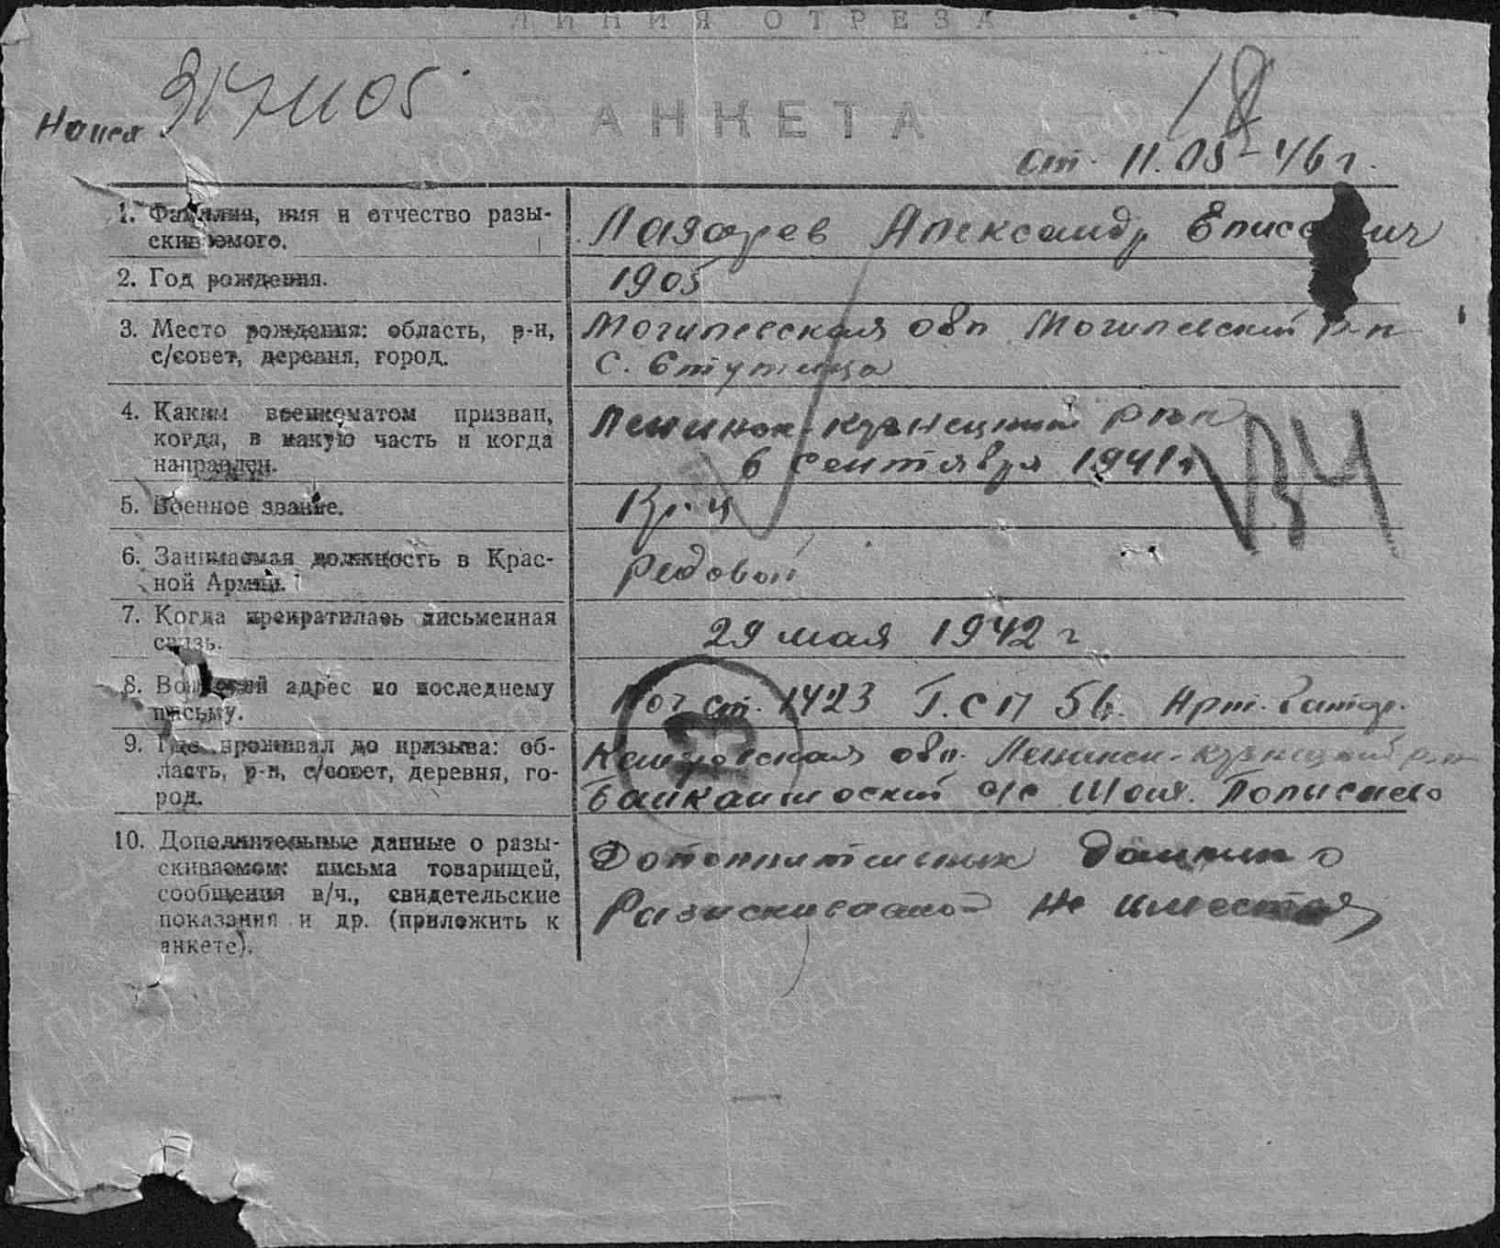 ЛИНИЯ ОТРЕЗА
АНКЕТА
18
от. 11.05-46 г.
1. Фамилия, имя и отчество разы-
скиваемого.
Лазарев Александр Елисеевич
2. Год рождения.
1905
3. Место рождения: область, р-н,
с/совет, деревня, город.
Могилевская обл Могилевский р-н
с.
4. Каким военкоматом призван,
когда, в какую часть и когда
направлен.
Ленинск-Кузнецкий
6 сентября 1941 г
ВЧ
5. Военное звание.
Кр-ц
6. Занимаемая должность в Крас-
ной Армии.
Редовой
7. Когда прекратилась письменная
связь.
29 мая 1942 г
8. Воинский адрес по последнему
письму.
Поч ст. 1423 Г.С П 56. Арт. Батар.
13
9. Где проживал до призыва: об-
ласть, р-н, с/совет, деревня, го-
род.
Кемеровская обл. Ленинск-Кузнецкий р-н
с/с
10. Дополнительные данные о разы-
скиваемом: письма товарищей,
сообщения в/ч., свидетельские
показания и др. (приложить к
анкете).
данных о
не имеется